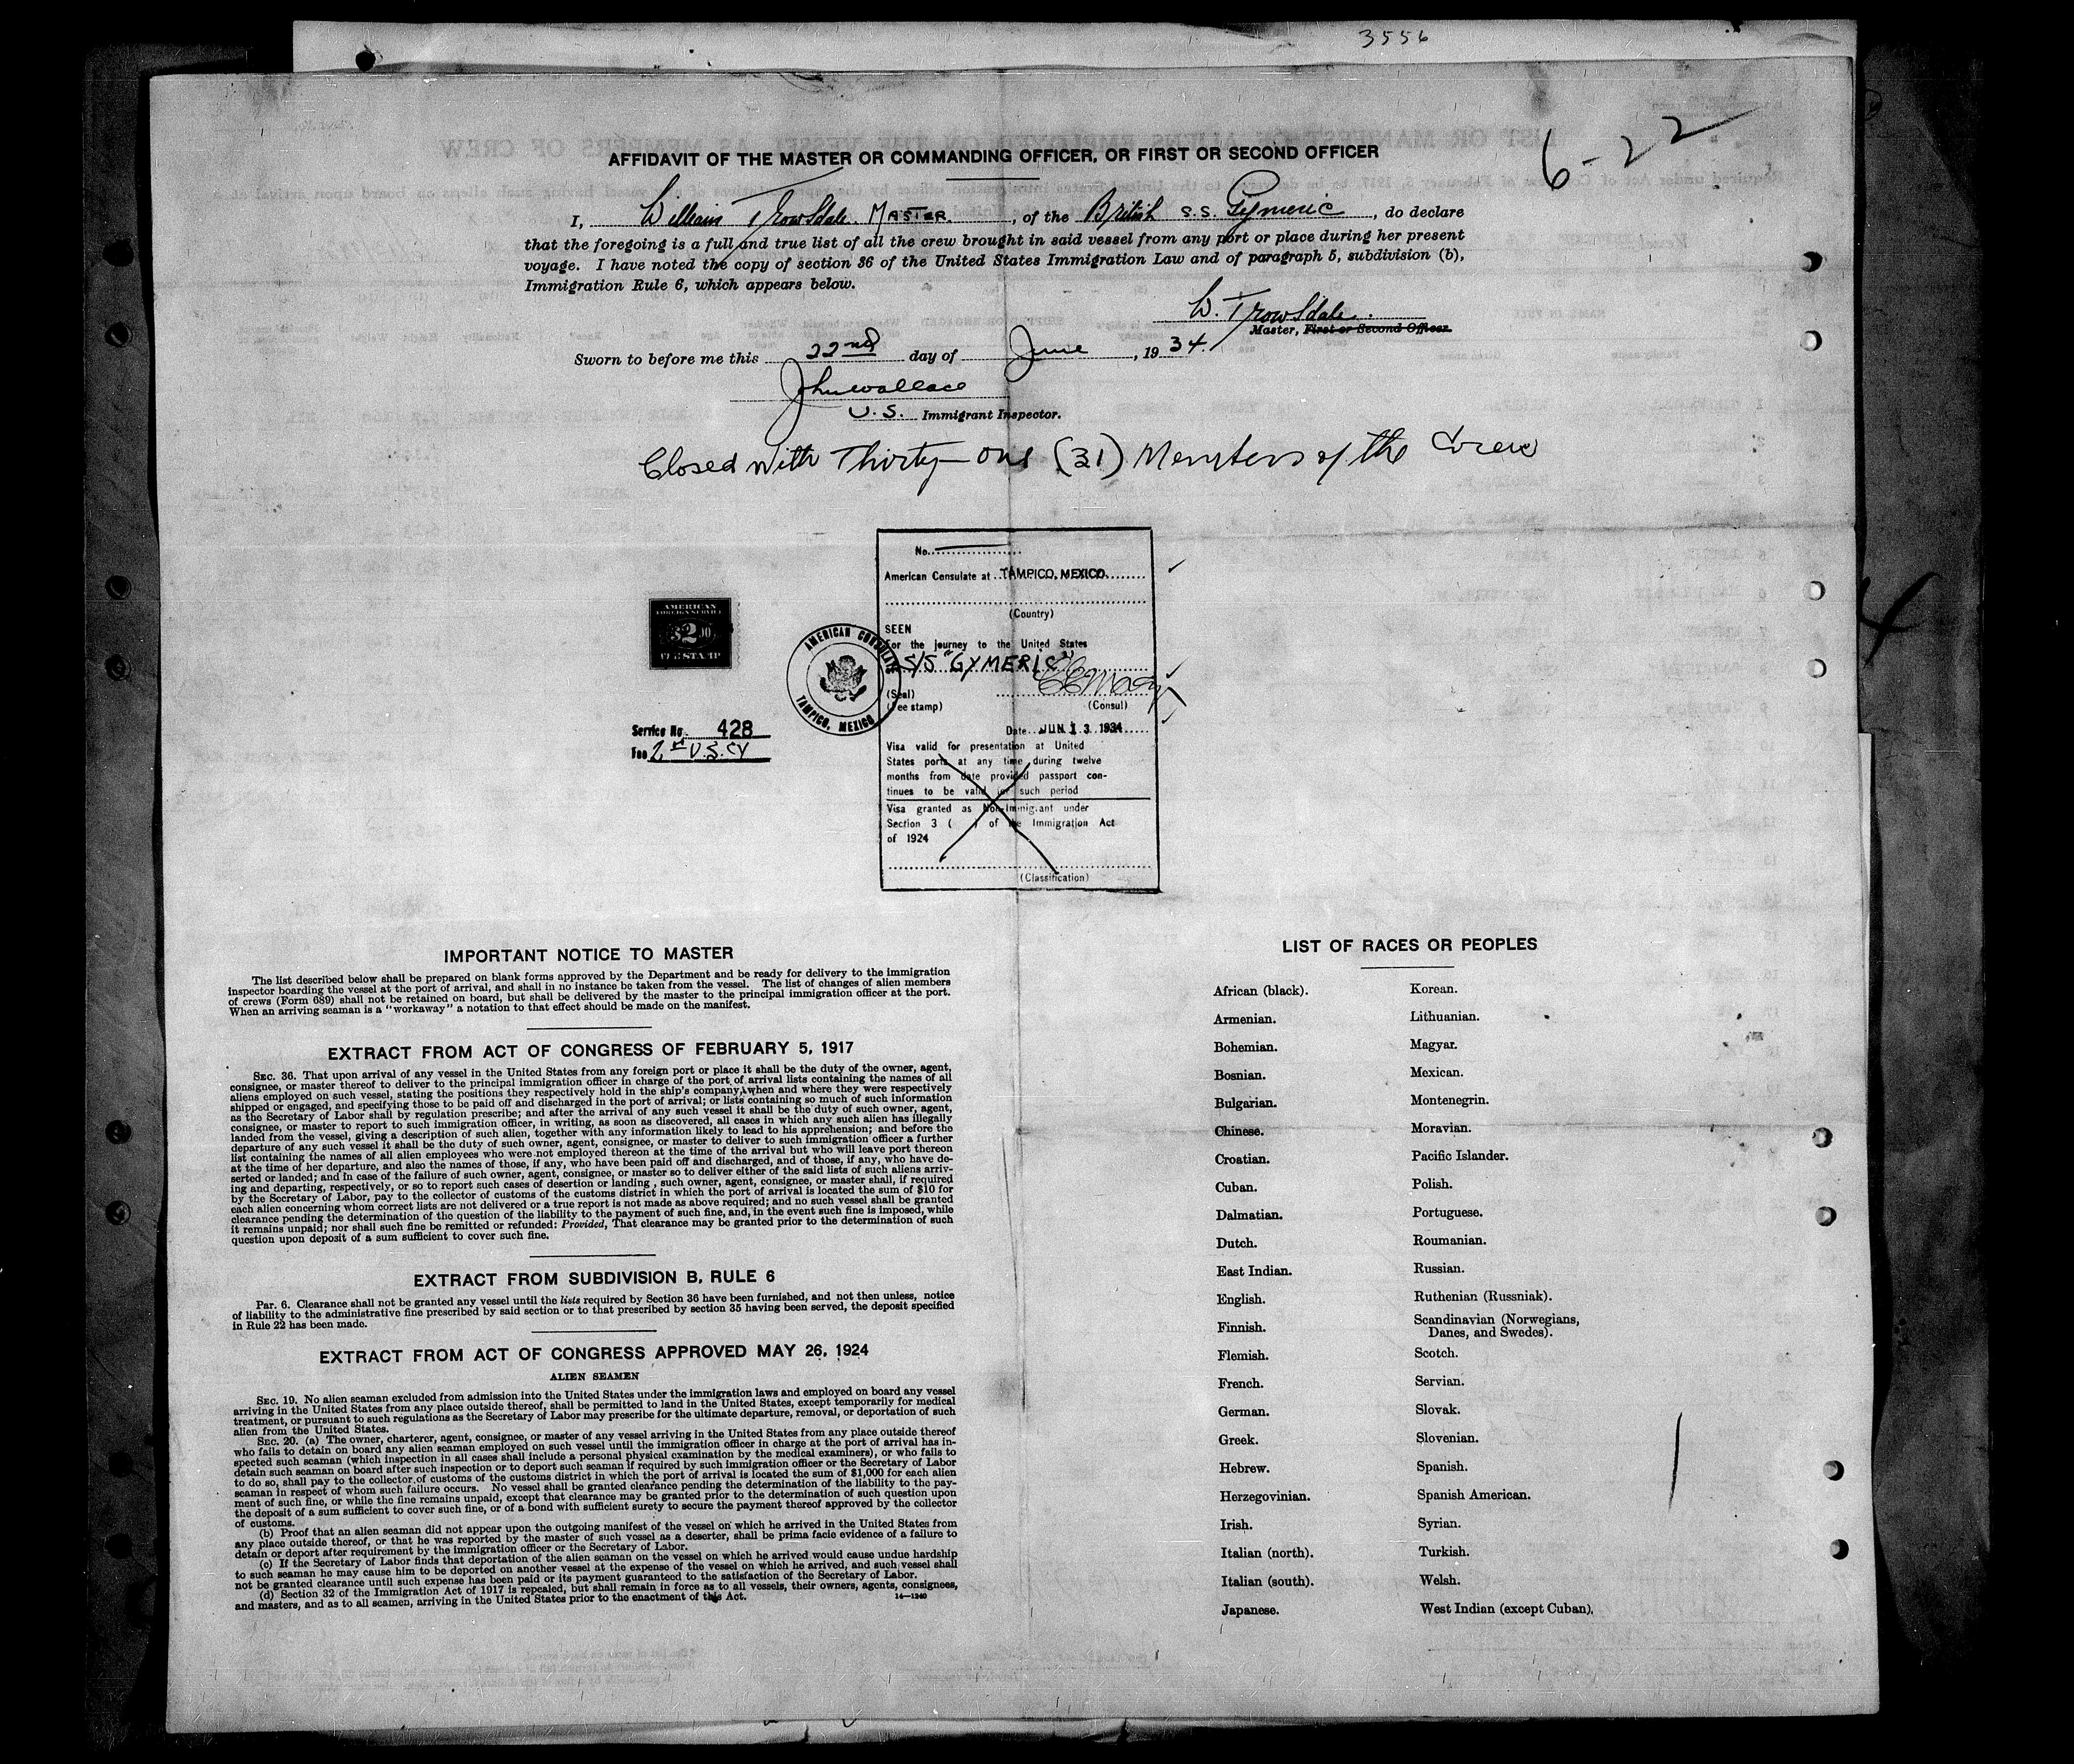 3556
6-22
AFFIDAVIT OF THE MASTER OR COMMANDING OFFICER, OR FIRST OR SECOND OFFICER
I, William Trowsdale. MASTER. , of the British S.S. Gymeric , do declare
that the foregoing is a full and true list of all the crew brought in said vessel from any port or place during her present
voyage. I have noted the copy of section 36 of the United States Immigration Law and of paragraph 5, subdivision (b),
Immigration Rule 6, which appears below.
W. Trowsdale.
Master, First or Second Officer.
Sworn to before me this 22nd day of June , 19 34.
John Wallace
U.S. Immigrant Inspector.
Closed with Thirty-one (31) Members of the Crew
No.
American Consulate at TAMPICO, MEXICO.
(Country)
SEEN
For the journey to the United States
S/S "GYMERIC"
(Seal)
(Fee stamp) (Consul)
Date JUN 13 1934
Visa valid for presentation at United
States ports at any time during twelve
months from date provided passport con-
tinues to be valid for such period
Visa granted as Non-Immigrant under
Section 3 ( ) of the Immigration Act
of 1924
(Classification)
AMERICAN
FOREIGN SERVICE
$2.00
FEE STAMP
AMERICAN CONSULATE
TAMPICO, MEXICO
Service No. 428
Fee 2 U.S. Cy
4
IMPORTANT NOTICE TO MASTER
The list described below shall be prepared on blank forms approved by the Department and be ready for delivery to the immigration
inspector boarding the vessel at the port of arrival, and shall in no instance be taken from the vessel. The list of changes of alien members
of crews (Form 689) shall not be retained on board, but shall be delivered by the master to the principal immigration officer at the port.
When an arriving seaman is a "workaway" a notation to that effect should be made on the manifest.
EXTRACT FROM ACT OF CONGRESS OF FEBRUARY 5, 1917
SEC. 36. That upon arrival of any vessel in the United States from any foreign port or place it shall be the duty of the owner, agent,
consignee, or master thereof to deliver to the principal immigration officer in charge of the port of arrival lists containing the names of all
aliens employed on such vessel, stating the positions they respectively hold in the ship's company, when and where they were respectively
shipped or engaged, and specifying those to be paid off and discharged in the port of arrival; or lists containing so much of such information
as the Secretary of Labor shall by regulation prescribe; and after the arrival of any such vessel it shall be the duty of such owner, agent,
consignee, or master to report to such immigration officer, in writing, as soon as discovered, all cases in which any such alien has illegally
landed from the vessel, giving a description of such alien, together with any information likely to lead to his apprehension; and before the
departure of any such vessel it shall be the duty of such owner, agent, consignee, or master to deliver to such immigration officer a further
list containing the names of all alien employees who were not employed thereon at the time of the arrival but who will leave port thereon
at the time of her departure, and also the names of those, if any, who have been paid off and discharged, and of those, if any, who have de-
serted or landed; and in case of the failure of such owner, agent, consignee, or master so to deliver either of the said lists of such aliens arriv-
ing and departing, respectively, or so to report such cases of desertion or landing , such owner, agent, consignee, or master shall, if required
by the Secretary of Labor, pay to the collector of customs of the customs district in which the port of arrival is located the sum of $10 for
each alien concerning whom correct lists are not delivered or a true report is not made as above required; and no such vessel shall be granted
clearance pending the determination of the question of the liability to the payment of such fine, and, in the event such fine is imposed, while
it remains unpaid; nor shall such fine be remitted or refunded: Provided, That clearance may be granted prior to the determination of such
question upon deposit of a sum sufficient to cover such fine.
EXTRACT FROM SUBDIVISION B, RULE 6
Par. 6. Clearance shall not be granted any vessel until the lists required by Section 36 have been furnished, and not then unless, notice
of liability to the administrative fine prescribed by said section or to that prescribed by section 35 having been served, the deposit specified
in Rule 22 has been made.
EXTRACT FROM ACT OF CONGRESS APPROVED MAY 26, 1924
ALIEN SEAMEN
SEC. 19. No alien seaman excluded from admission into the United States under the immigration laws and employed on board any vessel
arriving in the United States from any place outside thereof, shall be permitted to land in the United States, except temporarily for medical
treatment, or pursuant to such regulations as the Secretary of Labor may prescribe for the ultimate departure, removal, or deportation of such
alien from the United States.
SEC. 20. (a) The owner, charterer, agent, consignee, or master of any vessel arriving in the United States from any place outside thereof
who fails to detain on board any alien seaman employed on such vessel until the immigration officer in charge at the port of arrival has in-
spected such seaman (which inspection in all cases shall include a personal physical examination by the medical examiners), or who fails to
detain such seaman on board after such inspection or to deport such seaman if required by such immigration officer or the Secretary of Labor
to do so, shall pay to the collector of customs of the customs district in which the port of arrival is located the sum of $1,000 for each alien
seaman in respect of whom such failure occurs. No vessel shall be granted clearance pending the determination of the liability to the pay-
ment of such fine, or while the fine remains unpaid, except that clearance may be granted prior to the determination of such question upon
the deposit of a sum sufficient to cover such fine, or of a bond with sufficient surety to secure the payment thereof approved by the collector
of customs.
(b) Proof that an alien seaman did not appear upon the outgoing manifest of the vessel on which he arrived in the United States from
any place outside thereof, or that he was reported by the master of such vessel as a deserter, shall be prima facie evidence of a failure to
detain or deport after requirement by the immigration officer or the Secretary of Labor.
(c) If the Secretary of Labor finds that deportation of the alien seaman on the vessel on which he arrived would cause undue hardship
to such seaman he may cause him to be deported on another vessel at the expense of the vessel on which he arrived, and such vessel shall
not be granted clearance until such expense has been paid or its payment guaranteed to the satisfaction of the Secretary of Labor.
(d) Section 32 of the Immigration Act of 1917 is repealed, but shall remain in force as to all vessels, their owners, agents, consignees,
and masters, and as to all seamen, arriving in the United States prior to the enactment of this Act. 14—1240
LIST OF RACES OR PEOPLES
African (black).
Armenian.
Bohemian.
Bosnian.
Bulgarian.
Chinese.
Croatian.
Cuban.
Dalmatian.
Dutch.
East Indian.
English.
Finnish.
Flemish.
French.
German.
Greek.
Hebrew.
Herzegovinian.
Irish.
Italian (north).
Italian (south).
Japanese.
Korean.
Lithuanian.
Magyar.
Mexican.
Montenegrin.
Moravian.
Pacific Islander.
Polish.
Portuguese.
Roumanian.
Russian.
Ruthenian (Russniak).
Scandinavian (Norwegians,
Danes, and Swedes).
Scotch.
Servian.
Slovak.
Slovenian.
Spanish.
Spanish American.
Syrian.
Turkish.
Welsh.
West Indian (except Cuban).